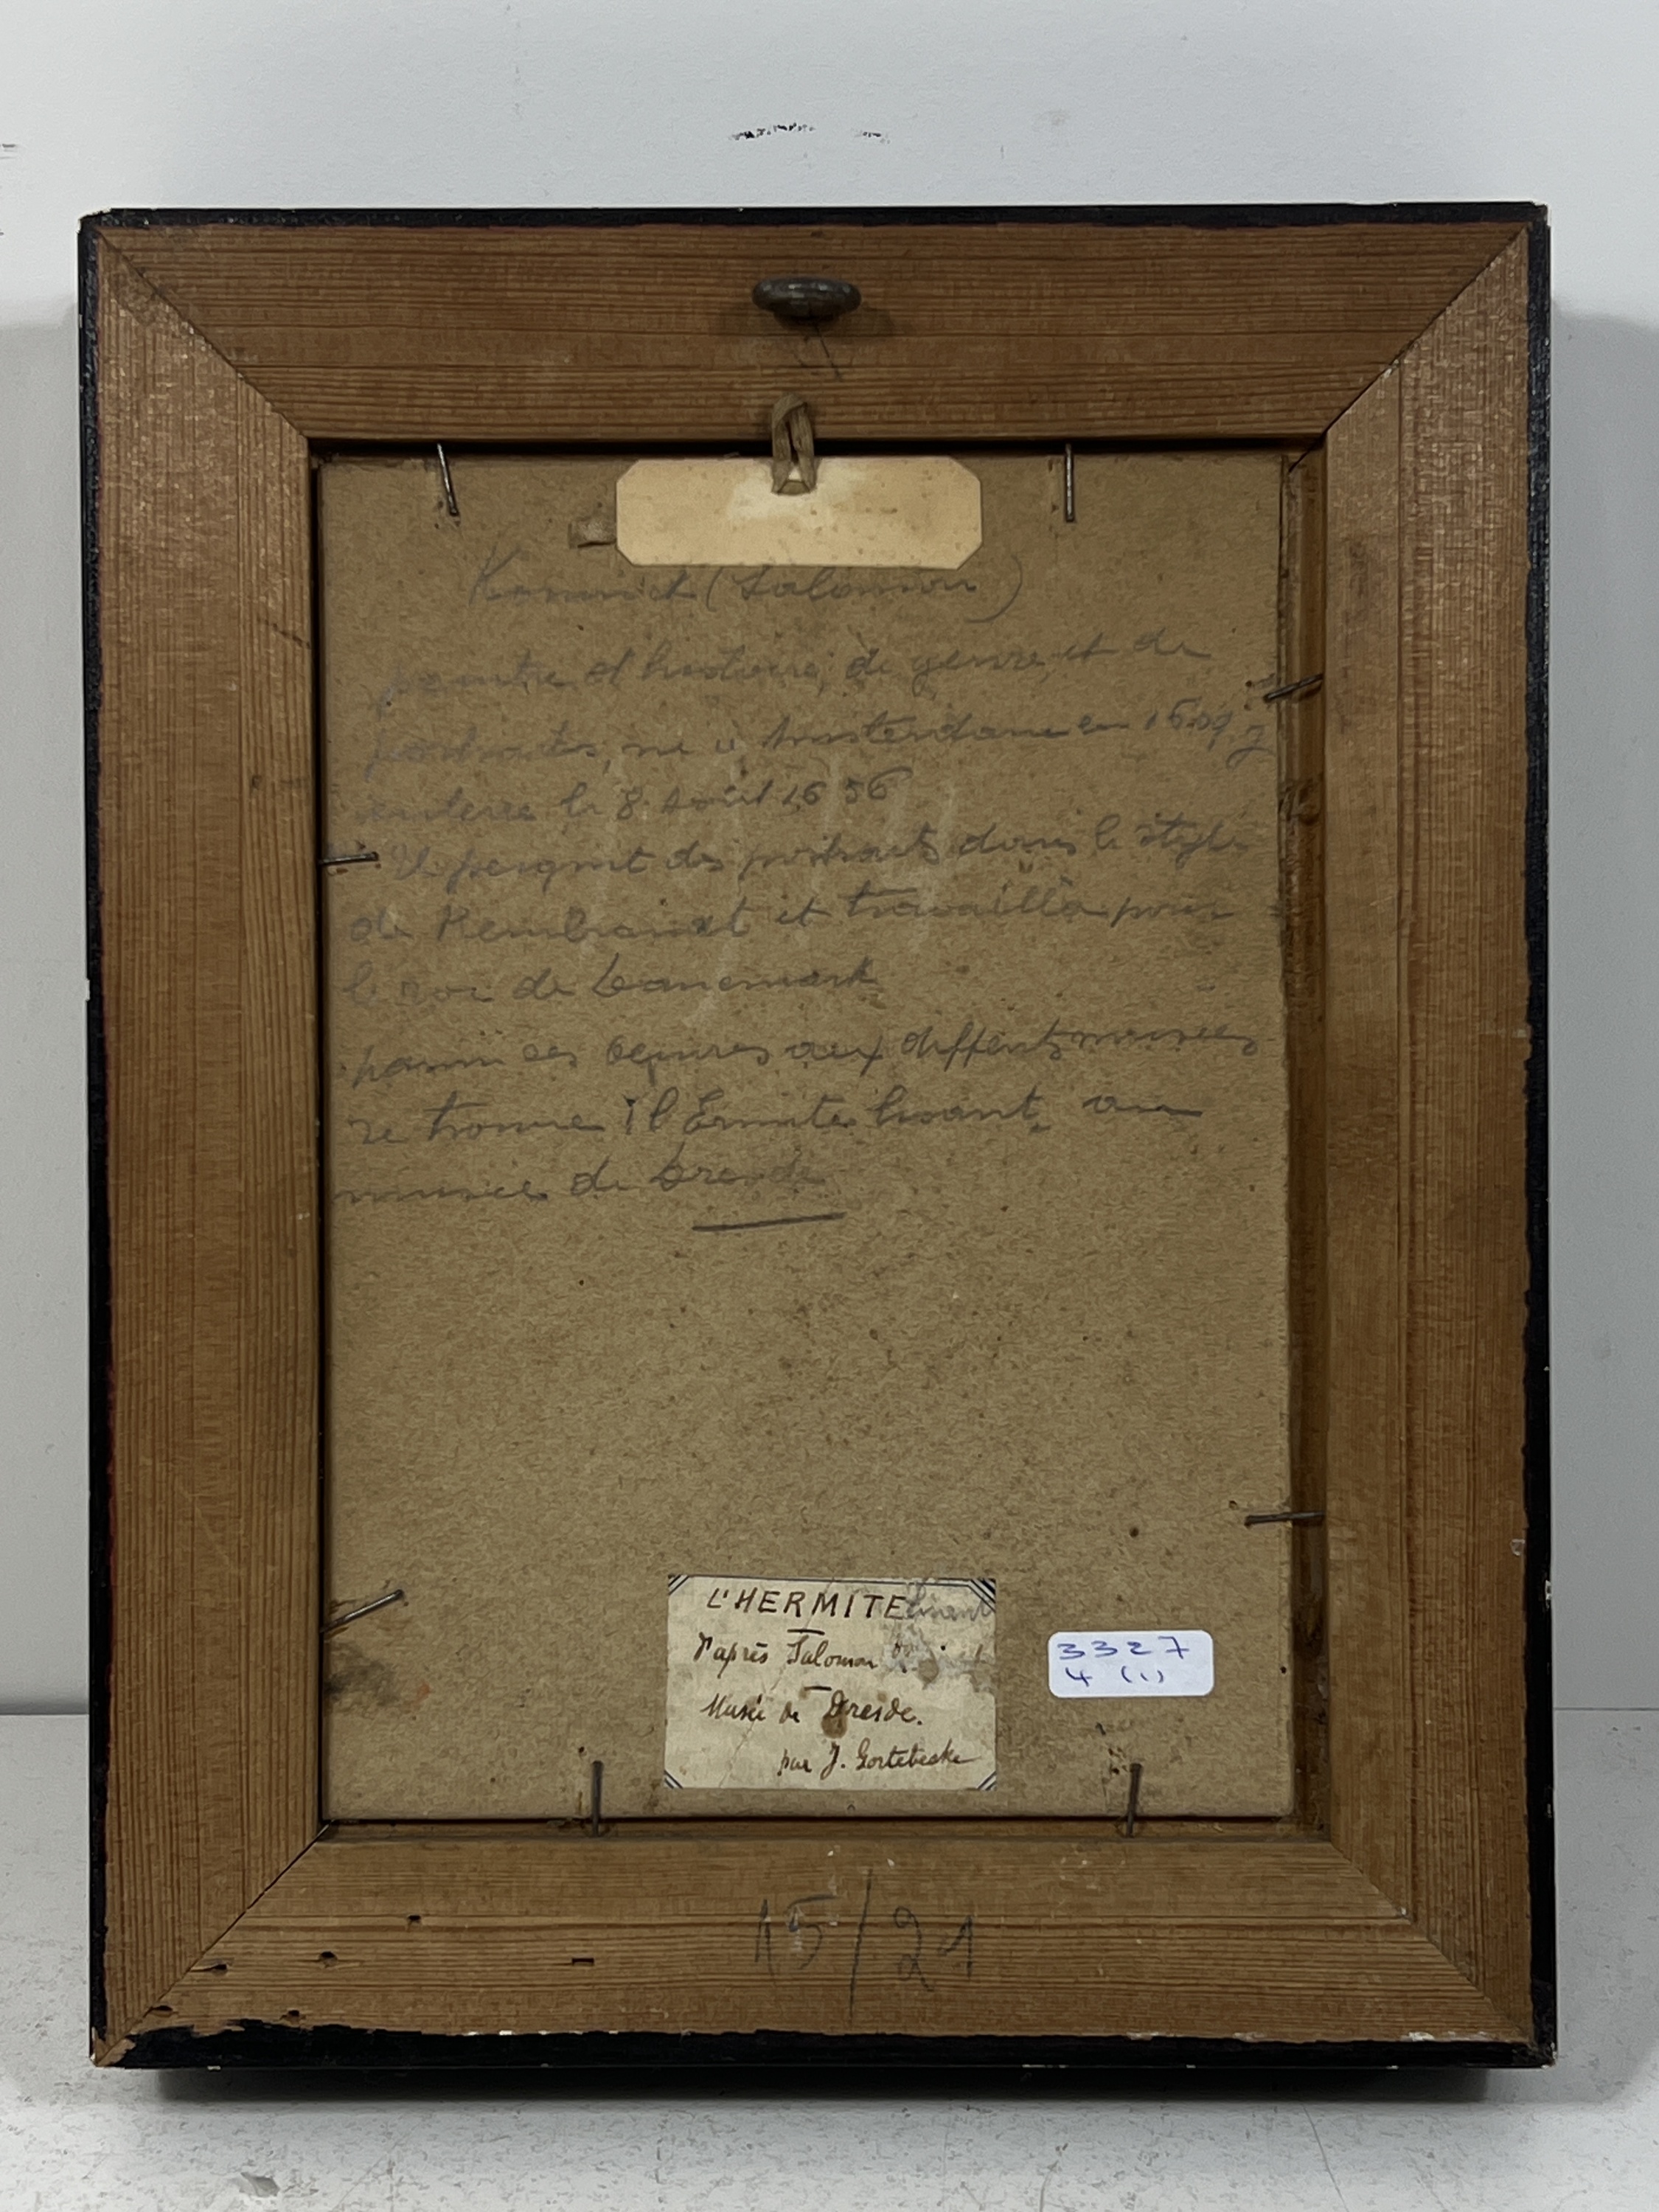 Konninck (Salomon)
peintre d'histoire, de genre et de
portraits, né à Amsterdam en 1609,
enterré le 8 Août 1656
Il peignit des portraits dans le style
de Rembrandt et travailla pour
le roi de Danemark
parmi ses oeuvres aux differents musées
se trouve l'Ermite lisant, au
musée de Dresde
L'HERMITE lisant
d'après Salomon
Musée de Dresde.
par J. Gortebecke
3327
4 (1)
15/21